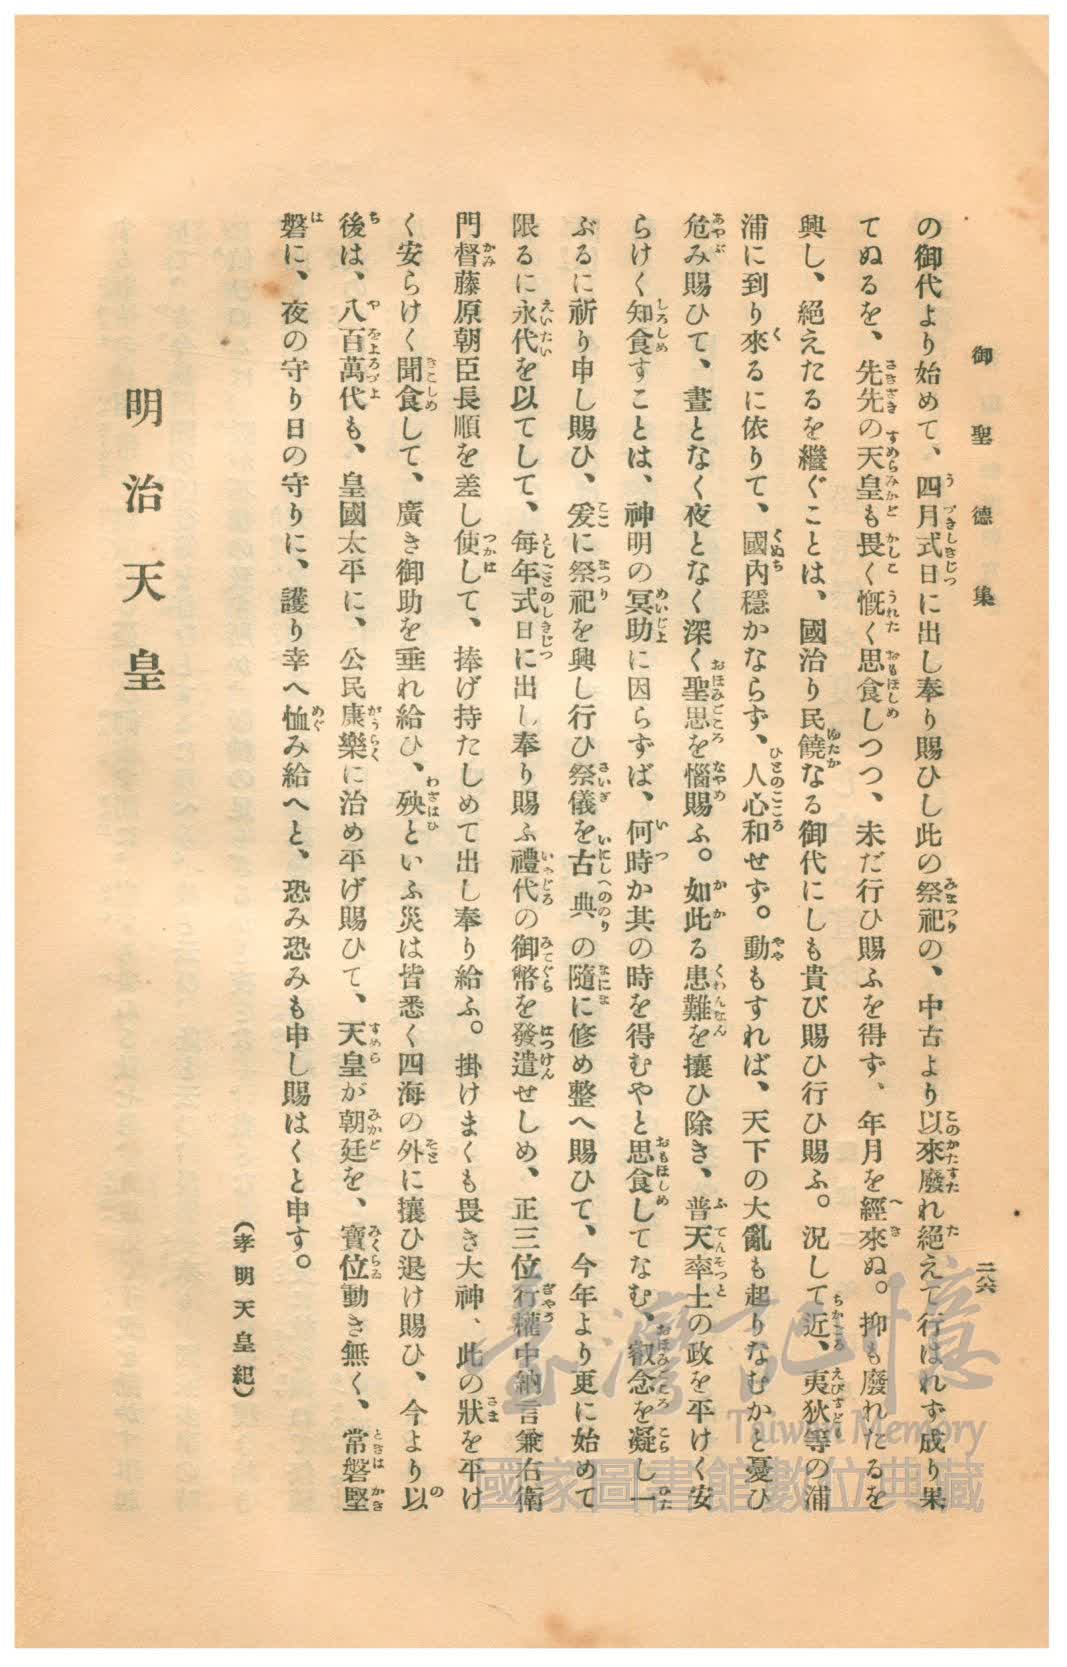 御聖德集
二八六
の御代より始めて、四月式日に出し奉り賜ひし此の祭祀の、中古より以來廢れ絕えて行はれず成り果
てぬるを、先先の天皇も畏く慨く思食しつつ、未だ行ひ賜ふを得ず、年月を經來ぬ。抑も廢れたるを
興し、絕えたるを繼ぐことは、國治り民饒なる御代にしも貴び賜ひ行ひ賜ふ。況して近、夷狄等の浦
浦に到り來るに依りて、國內穩かならず、人心和せず。動もすれば、天下の大亂も起りなむかと憂ひ
危み賜ひて、晝となく夜となく深く聖思を惱賜ふ。如此る患難を攘ひ除き、普天率土の政を平けく安
らけく知食すことは、神明の冥助に因らずば、何時か其の時を得むやと思食してなむ、叡念を凝し一
ぶるに祈り申し賜ひ、爰に祭祀を興し行ひ祭儀を古典の隨に修め整へ賜ひて、今年より更に始めて
限るに永代を以てして、每年式日に出し奉り賜ふ禮代の御幣を發遣せしめ、正三位行權中納言兼右衛
門督藤原朝臣長順を差し使して、捧げ持たしめて出し奉り給ふ。掛けまくも畏き大神、此の狀を平け
く安らけく聞食して、廣き御助を垂れ給ひ、殃といふ災は皆悉く四海の外に攘ひ退け賜ひ、今より以
後は、八百萬代も、皇國太平に、公民康樂に治め平げ賜ひて、天皇が朝廷を、寶位動き無く、常磐堅
磐に、夜の守り日の守りに、護り幸へ恤み給へと、恐み恐みも申し賜はくと申す。
（孝明天皇紀）
明治天皇
臺灣記憶
Taiwan Memory
國家圖書館數位典藏